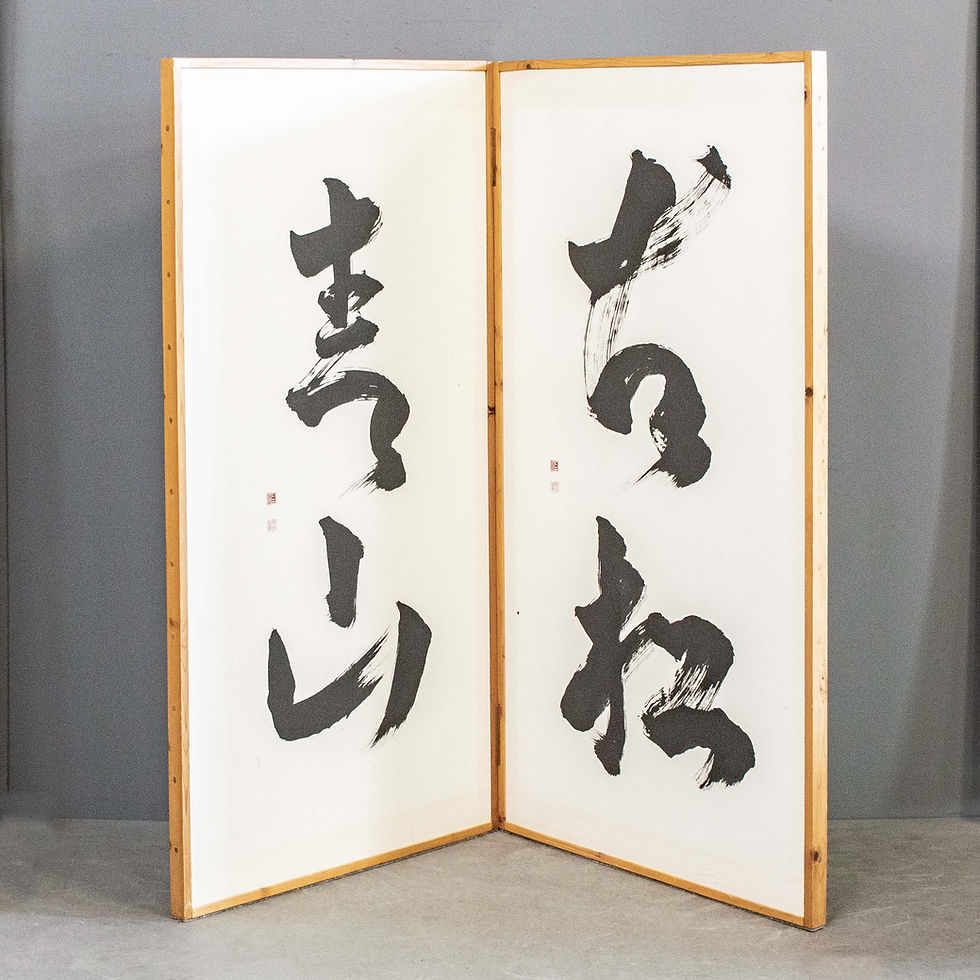 古松
青山